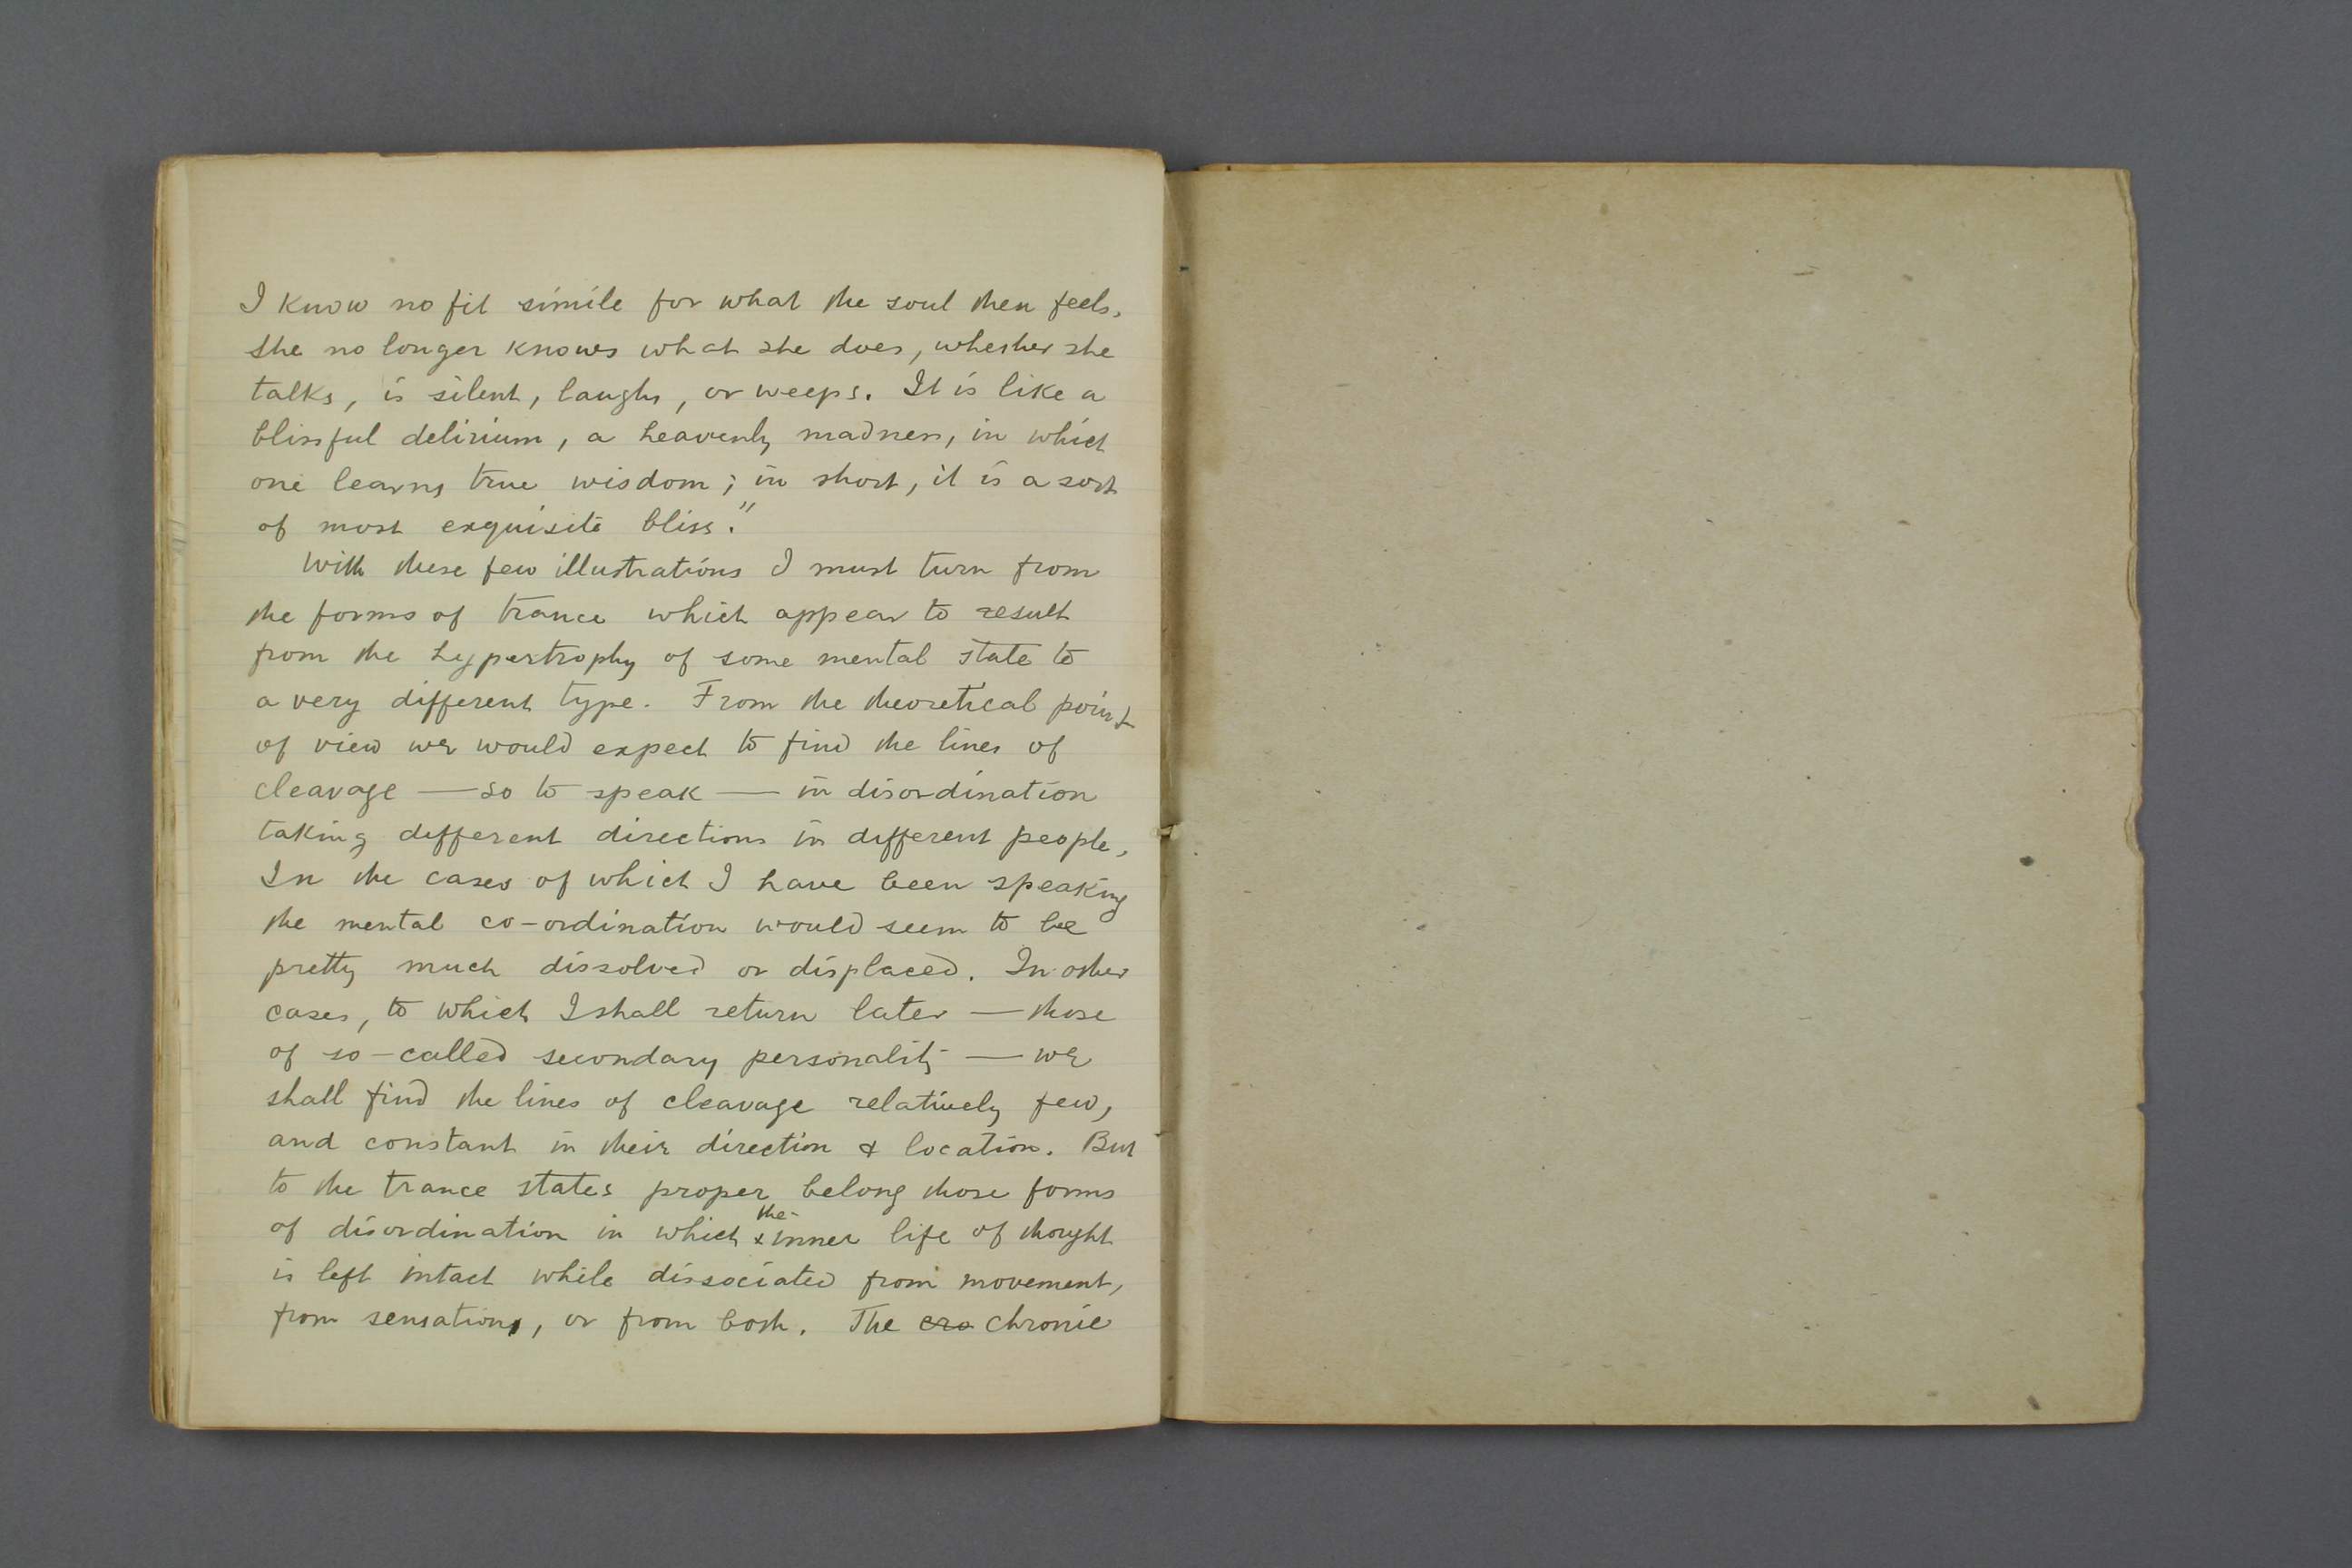 I know no fit simile for what the soul then feels.
She no longer knows what she does, whether she
talks, is silent, laughs, or weeps. It is like a
blissful delirium, a heavenly madness, in which
one learns true wisdom; in short, it is a sort
of most exquisite bliss."
With these few illustrations I must turn from
the forms of trance which appear to result
from the hypertrophy of some mental state to
a very different type. From the theoretical point
of view we would expect to find the lines of
cleavage — so to speak — in disordination
taking different directions in different people.
In the cases of which I have been speaking
the mental co-ordination would seem to be
pretty much dissolved or displaced. In other
cases, to which I shall return later — those
of so-called secondary personality — we
shall find the lines of cleavage relatively few,
and constant in their direction & location. But
to the trance states proper belong those forms
of disordination in which the inner life of thought
is left intact while dissociated from movement,
from sensation, or from both. The cro chronic